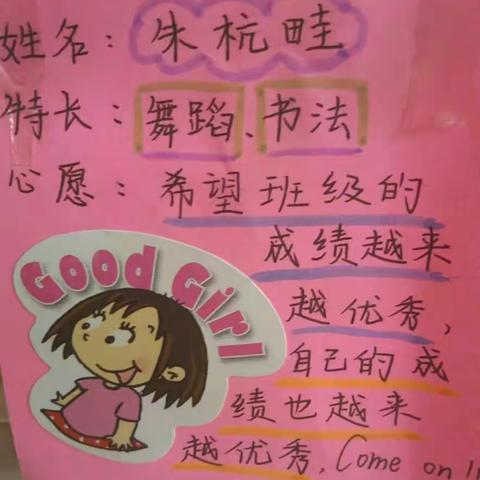 姓名：朱杭畦
特长：舞蹈、书法
心愿：希望班级的
成绩越来
越优秀，
自己的成
绩也越来
越优秀，Come on!!
Good Girl